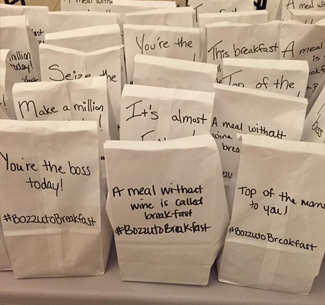 A meal with
million
today!
You're the
This breakfast
A meal
is
Seize the
Top of the
Make a million
It's almost
A meal without
wine is
brea
You're the boss
today!
#BozzutoBreakfast
A meal without
wine is called
breakfast
#BozzutoBreakfast
Top of the morn
to you!
#BozzutoBreakfast